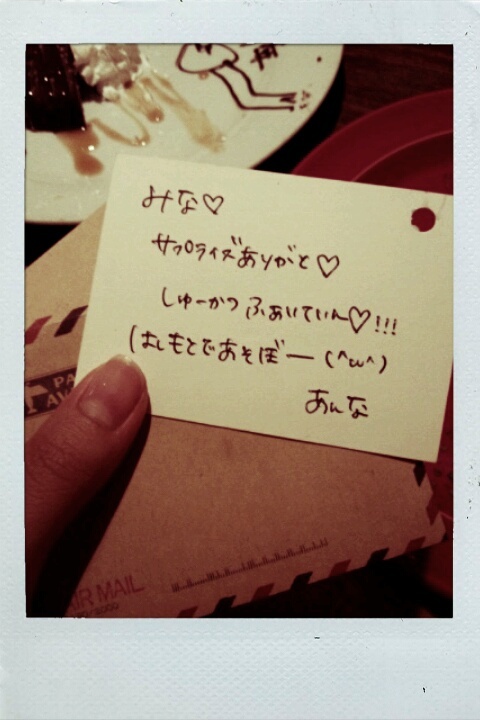 みな♡
サプライズありがと♡
しゅーかつ ふぁいてぃん♡!!!
はしもとであそぼー (^ω^)
あんな
PA
AV
AIR MAIL